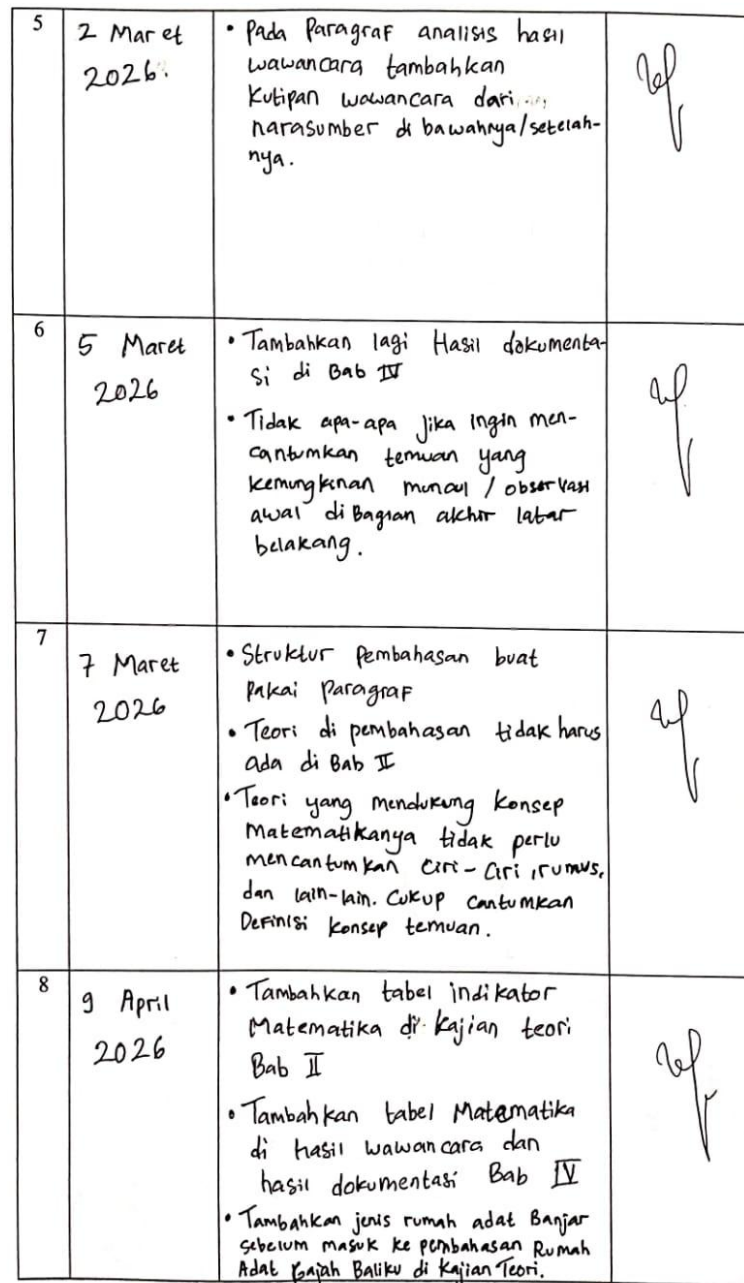 5
2 Maret
2026.
• Pada Paragraf analisis hasil
wawancara tambahkan
Kutipan wawancara dari
narasumber di bawahnya/setelah-
nya.
6
5 Maret
2026
• Tambahkan lagi Hasil dokumenta-
si di Bab IV
• Tidak apa-apa jika ingin men-
cantumkan temuan yang
kemungkinan muncul / observasi
awal di Bagian akhir latar
belakang.
7
7 Maret
2026
• Struktur Pembahasan buat
pakai Paragraf
• Teori di pembahasan tidak harus
ada di Bab II
• Teori yang mendukung konsep
Matematikanya tidak perlu
mencantumkan Ciri-Ciri, rumus,
dan lain-lain. Cukup cantumkan
Definisi konsep temuan.
8
9 April
2026
• Tambahkan tabel indikator
Matematika di kajian teori
Bab II
• Tambahkan tabel Matematika
di hasil wawancara dan
hasil dokumentasi Bab IV
• Tambahkan jenis rumah adat Banjar
sebelum masuk ke pembahasan Rumah
Adat Gajah Baliku di Kajian Teori.